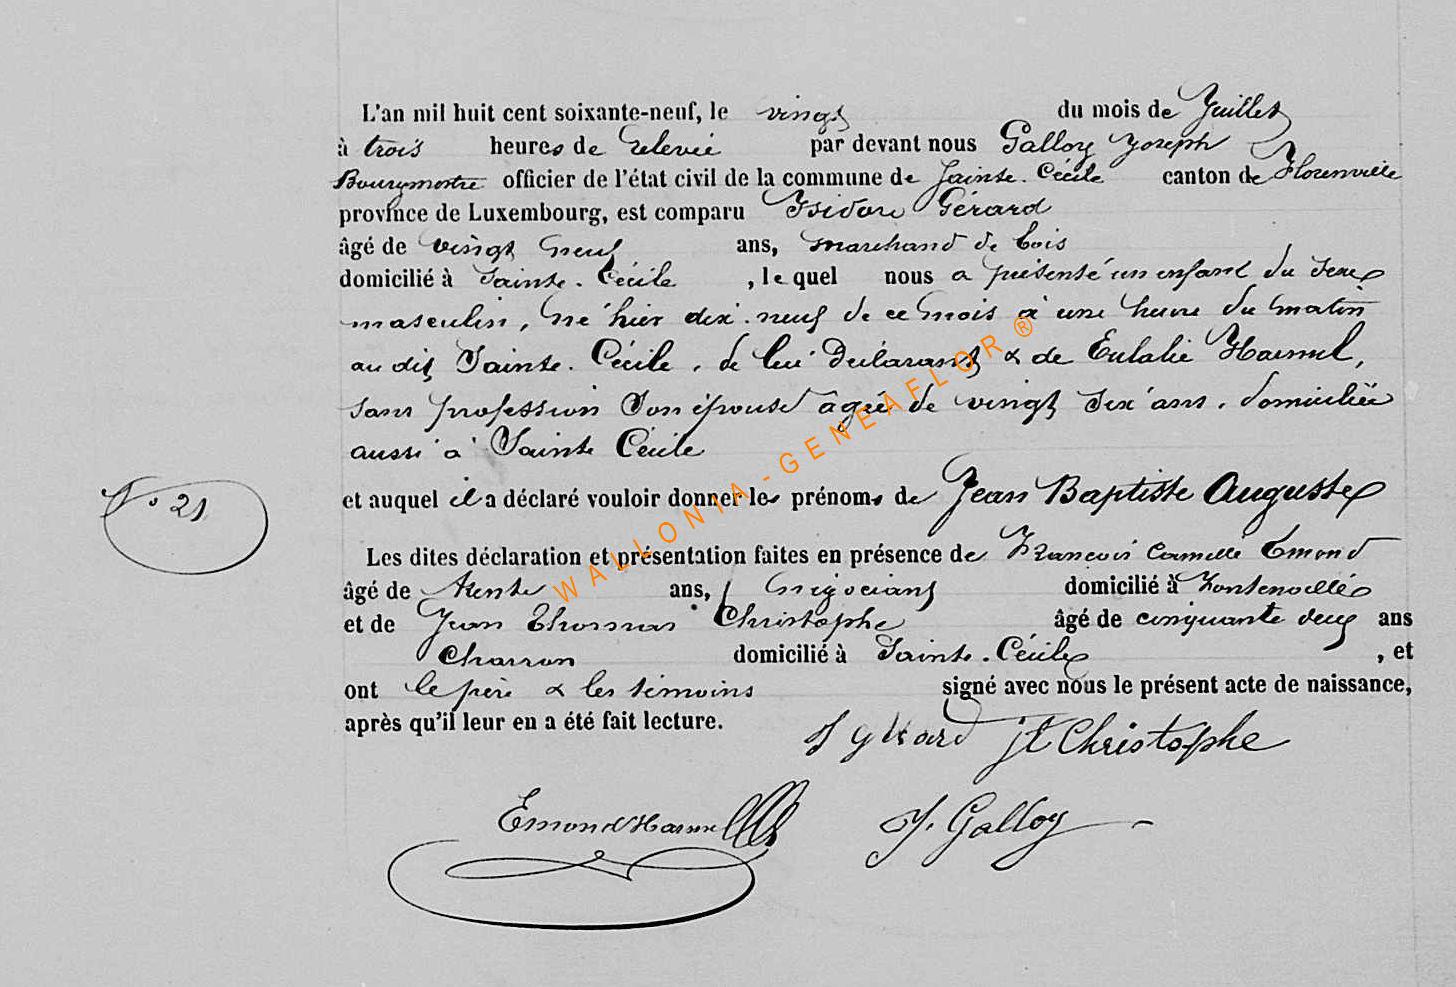 L'an mil huit cent soixante-neuf, le vingt du mois de Juillet
à trois heures de relevée par devant nous Galloy Joseph
Bourgmestre officier de l'état civil de la commune de Sainte-Cécile canton de Florenville
province de Luxembourg, est comparu Isidore Gérard
âgé de vingt neuf ans, marchand de bois
domicilié à Sainte-Cécile, lequel nous a présenté un enfant du sexe
masculin, né hier dix-neuf de ce mois à une heure du matin
au dit Sainte-Cécile, de lui Déclarant & de Eulalie Hamel,
sans profession son épouse âgée de vingt six ans, domiciliée
aussi à Sainte Cécile
N° 21
et auquel il a déclaré vouloir donner les prénoms de Jean Baptiste Auguste
Les dites déclaration et présentation faites en présence de François Camille Emond
âgé de trente ans, négociant domicilié à Fontenoille
et de Jean Thomas Christophe âgé de cinquante deux ans
Charron domicilié à Sainte-Cécile, et
ont le père & les témoins signé avec nous le présent acte de naissance,
après qu'il leur en a été fait lecture.
J Gérard Jt Christophe
Emond Hamel J. Galloy
WALLONIA-GENEAFLOR ®